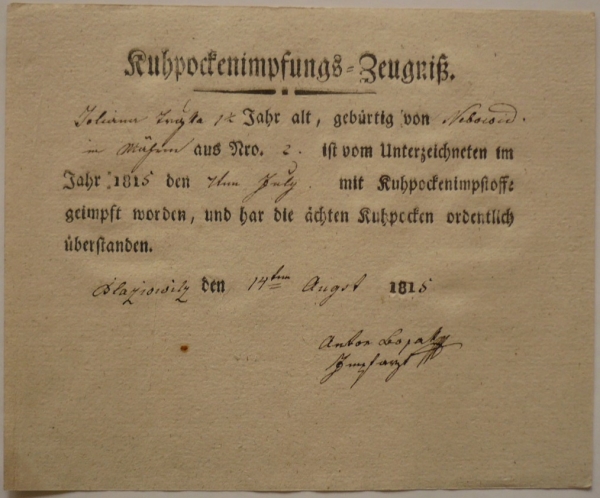 Kuhpockenimpfungs-Zeugniß.
Jahr alt, gebürtig von
in Mähren aus Nro. 2. ist vom Unterzeichneten im
Jahr 1815 den 7ten July. mit Kuhpockenimpfstoffe
geimpft worden, und har die ächten Kuhpocken ordentlich
überstanden.
Blaziowitz den 14ten Augst 1815
Impfarzt